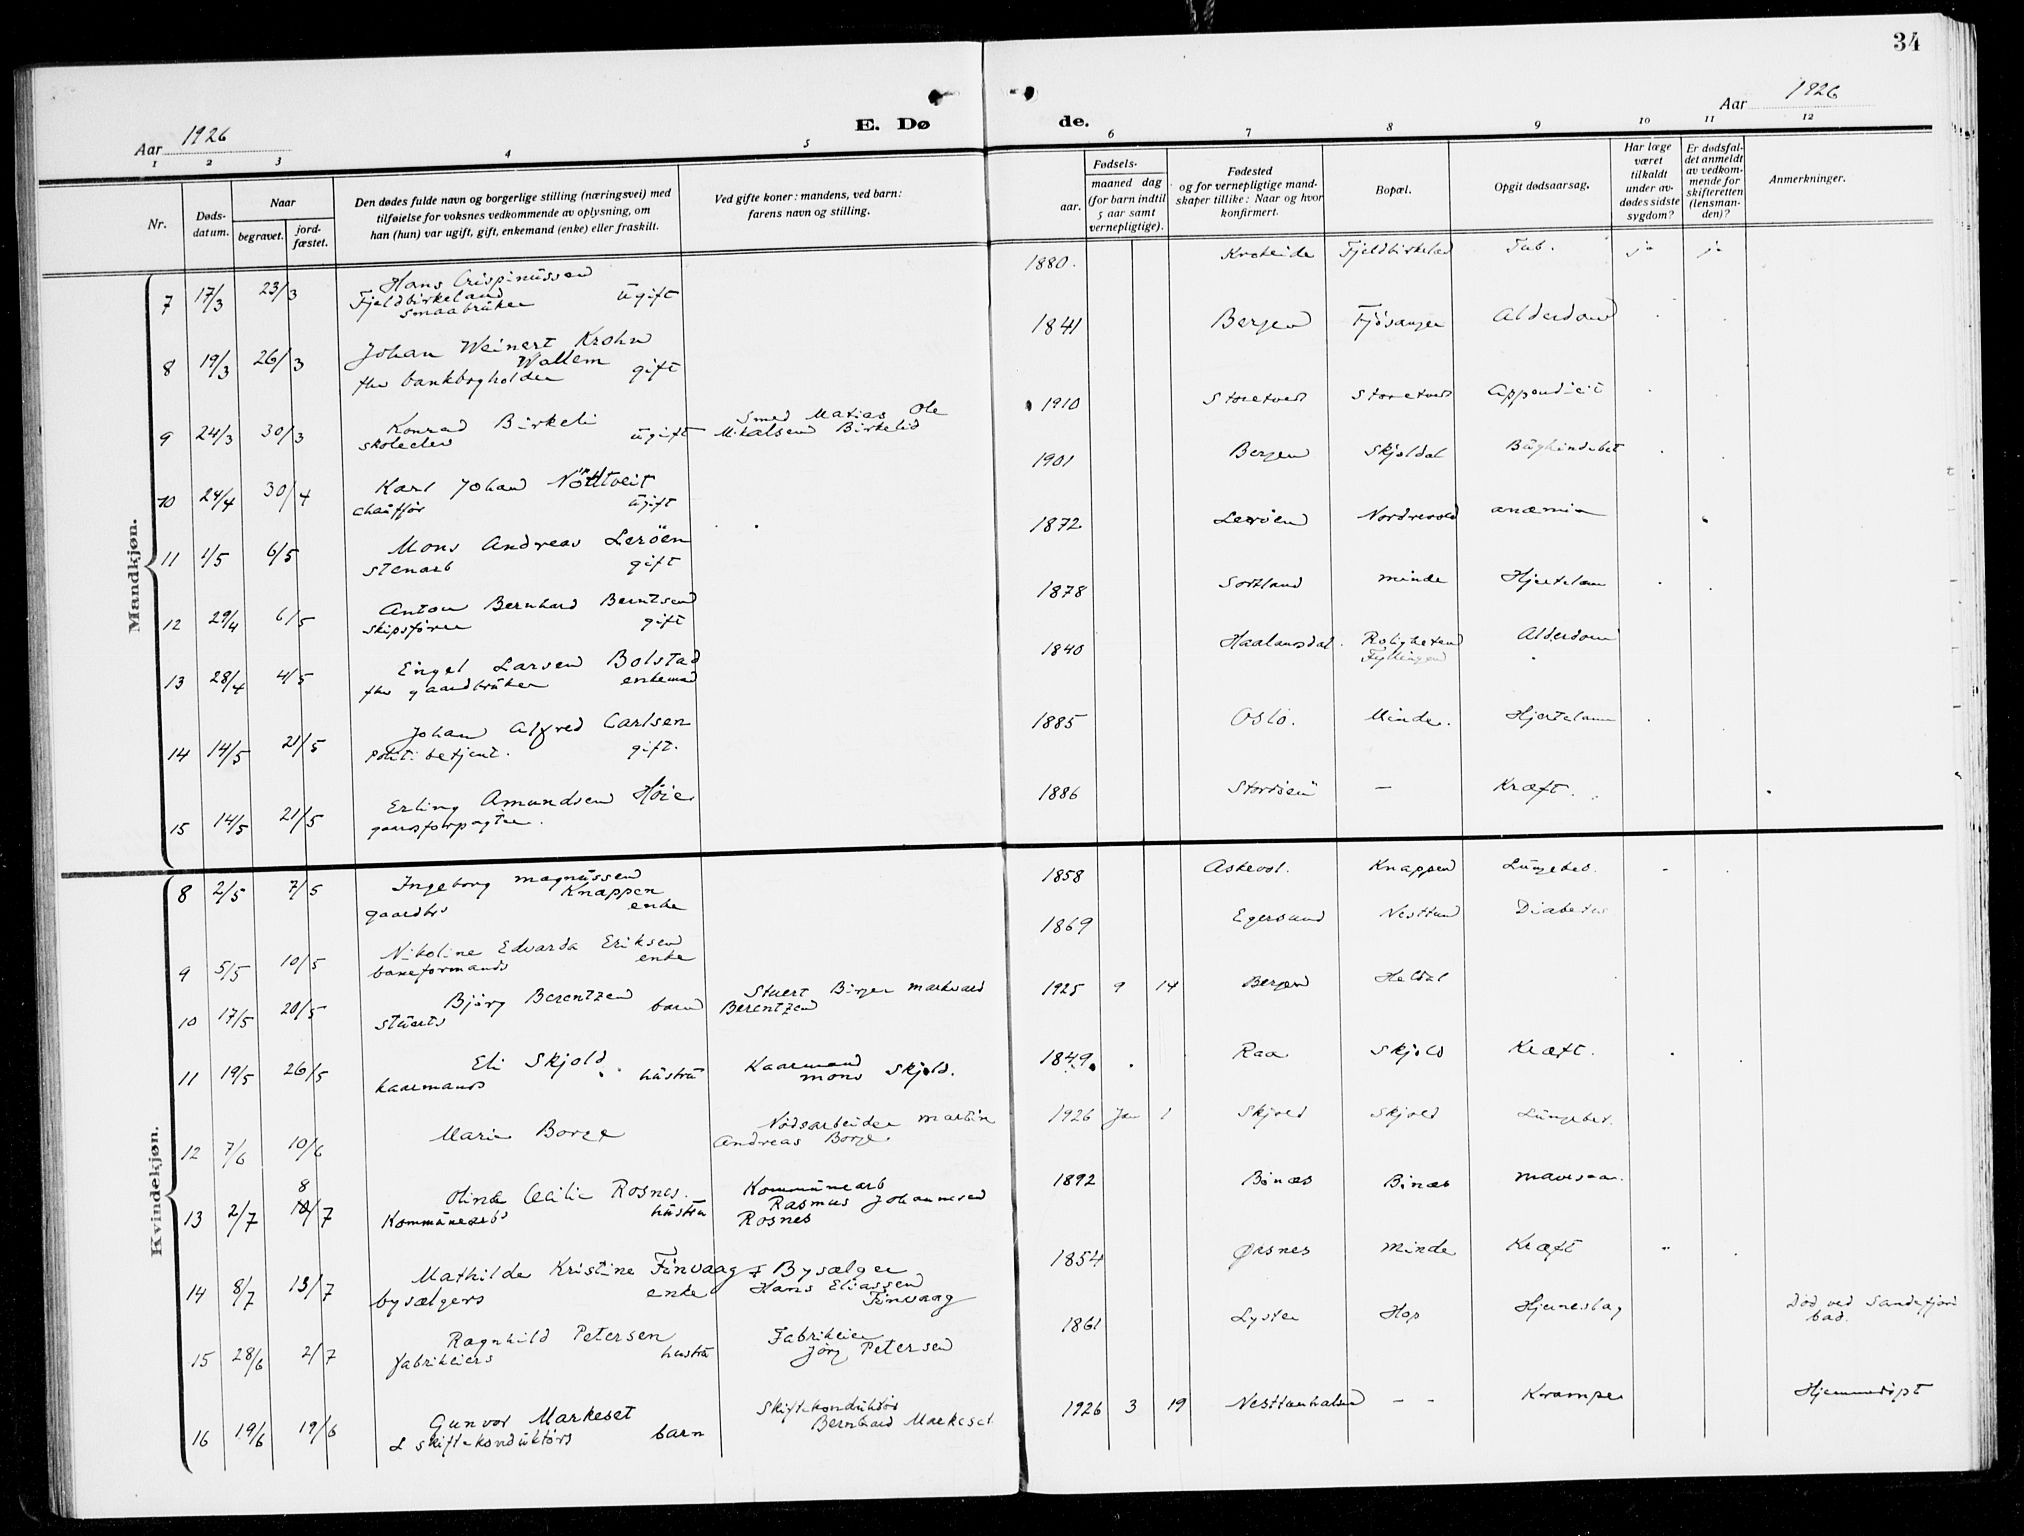 34
Aar 1926
E. Dø de.
Aar 1926
1 2 3 4 5 6 7 8 9 10 11 12
Nr.
Døds-
datum.
Naar
begravet.
jord-
fæstet.
Den dødes fulde navn og borgerlige stilling (næringsvei) med
tilføielse for voksnes vedkommende av oplysning, om
han (hun) var ugift, gift, enkemand (enke) eller fraskilt.
Ved gifte koner: mandens, ved barn:
farens navn og stilling.
Fødsels-
aar.
maaned dag
(for barn indtil
5 aar samt
vernepligtige).
Fødested
og for vernepligtige mand-
skaper tillike: Naar og hvor
konfirmert.
Bopæl.
Opgit dødsaarsag.
Har læge
været
tilkaldt
under av-
dødes sidste
sygdom?
Er dødsfal-
det anmeldt
av vedkom-
mende for
skifteretten
(lensman-
den)?
Anmerkninger.
Mandkjøn.
7 17/3 23/3 Hans Crispinussen
Fjeldbirkeland
smaabruker ugift
1880. Krokeide Fjeldbirkeland Tub. ja ja
8 19/3 26/3 Johan Weinert Krohn
Wallem
fhv bankbogholder gift
1841 Bergen Fjösanger Alderdom
9 24/3 30/3 Konrad Birkeli
skoleelev ugift
Smed Matias Ole
Mikalsen Birkelid
1910 Storetvet Storetvet Appendicit
10 24/4 30/4 Karl Johan Nöttveit
chauffør ugift
1901 Bergen Skjoldal Bughindebet
11 1/5 6/5 Mons Andreas Leröen
stenarb gift
1872 Leröen Nordrevold anæmia
12 29/4 6/5 Anton Bernhard Berntsen
skipsfører gift
1878 Sortland minde Hjertelam
13 28/4 4/5 Engel Larsen Bolstad
fhv gaardbruker enkemand
1840 Haalansdal Roligheten
Fyllingen
Alderdom
14 14/5 21/5 Johan Alfred Carlsen
Politibetjent. gift.
1885 Oslo. Minde. Hjertelam
15 14/5 21/5 Erling Amundsen Höie
gaardsforpagter.
1886 Stordöen — Kræft.
Kvindekjøn.
8 2/5 7/5 Ingeborg magnussen
Knappen
gaardbrs enke
1858 Askevol. Knappen Lungebet.
9 5/5 10/5 Nikoline Edvarda Eriksen
baneformands enke
1869 Egersund Nesttun Diabetes
10 17/5 20/5 Bjørg Berentzen
stuerts barn
Stuert Birger markvard
Berentzen
1925 9 14 Bergen Heldal
11 19/5 26/5 Eli Skjold.
kaarmands hustru
Kaarmand
mons Skjold.
1849. Raa Skjold Kræft.
12 7/6 10/6 Marie Borge
Nödsarbeider martin
Andreas Borge.
1926 Jan 1 Skjold Skjold Lungebet.
13 2/7 8/7 Oline Cecilie Rosnes.
Kommunearbs hustru
Kommunearb
Rasmus Johannesen
Rosnes
1892 Bönæs Bönæs mavesaar
14 8/7 13/7 Mathilde Kristine Finvaag
bysælgers enke
Bysælger
Hans Eliassen
Finvaag
1854 Ørsnes minde Kræft
15 28/6 2/7 Ragnhild Petersen
fabrikeiers hustru
Fabrikeier
Jörg Petersen
1861 Lyster Hop Hjerneslag Död ved Sandefjord
bad.
16 19/6 19/6 Gunvor Markeset
skiftekonduktørs barn
Skiftekonduktør
Bernhard Markeset
1926 3 19 Nesttunhalsen — — Krampe Hjemmedöpt